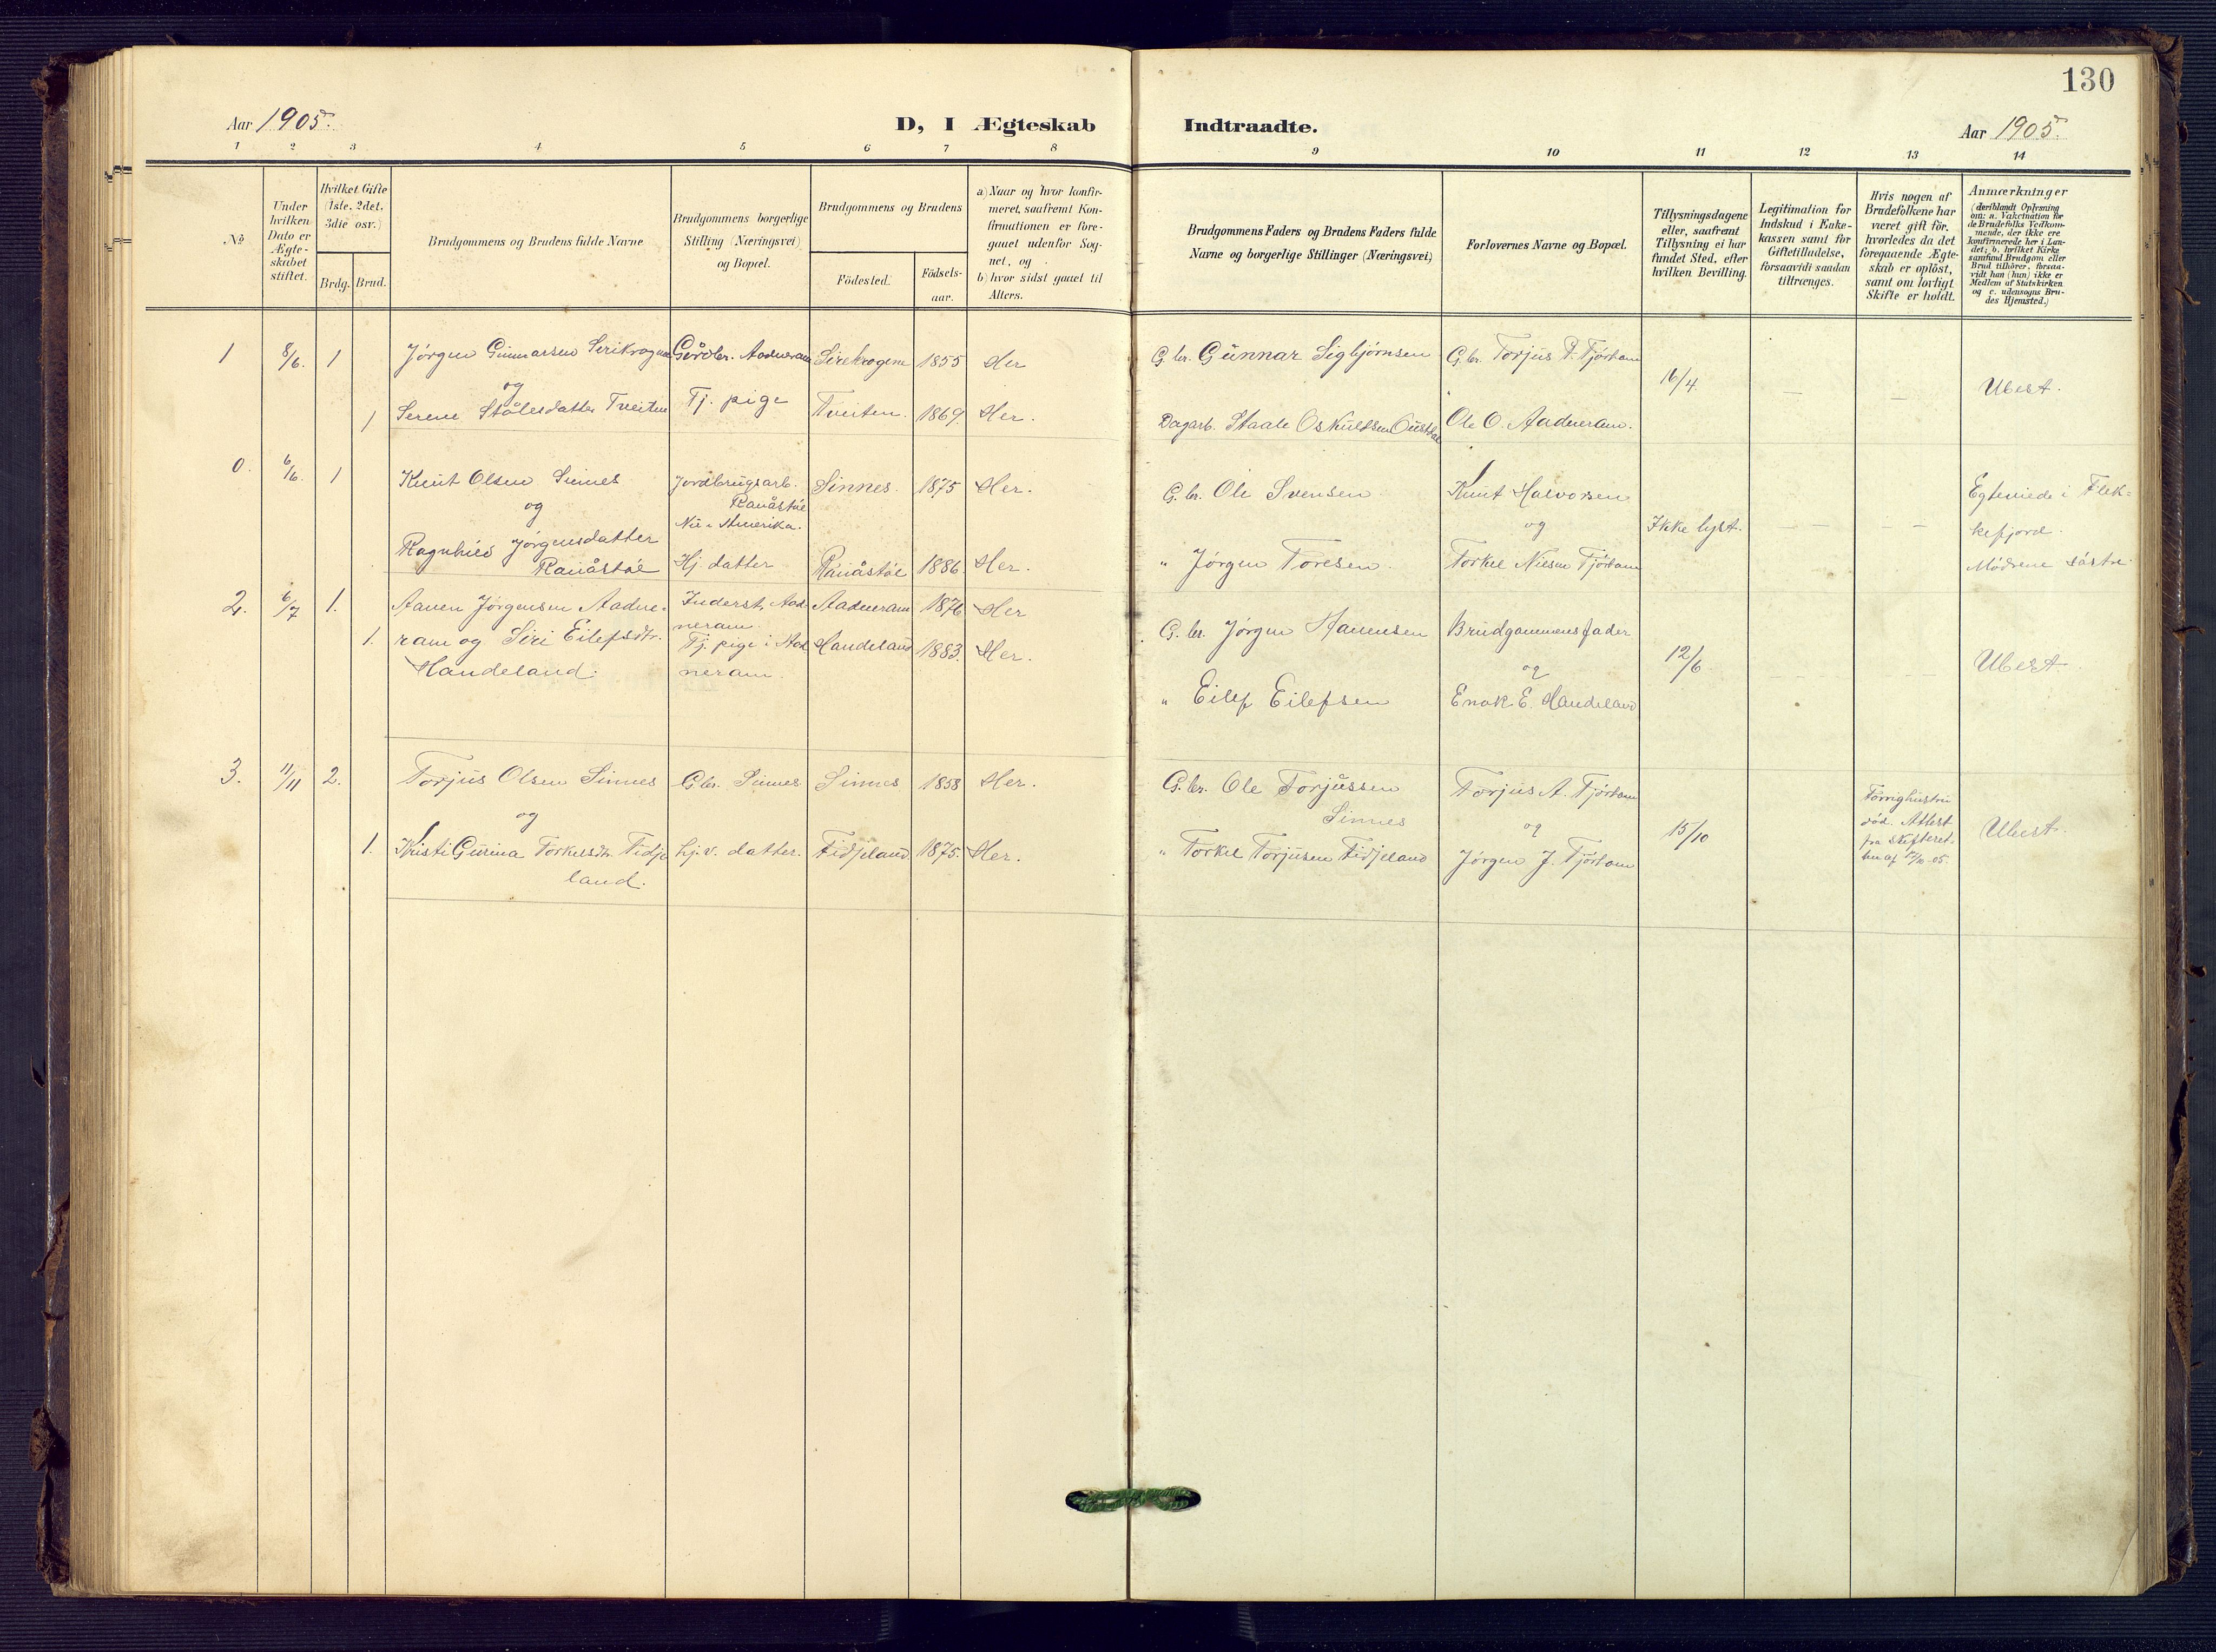 130
Aar 1905.
D, I Ægteskab Indtraadte.
Aar 1905.
1 2 3 4 5 6 7 8 9 10 11 12 13 14
No
Under hvilken Dato er Ægte-skabet stiftet.
Hvilket Gifte (1ste, 2det, 3die osv.)
Brdg. Brud.
Brudgommens og Brudens fulde Navne
Brudgommens borgerlige Stilling (Næringsvei) og Bopæl.
Brudgommens og Brudens
Födested. Födsels-aar.
a) Naar og hvor konfir-
meret, saafremt Kon-
firmationen er fore-
gaaet udenfor Sog-
net, og
b) hvor sidst gaaet til
Alters.
Brudgommens Faders og Brudens Faders fulde
Navne og borgerlige Stillinger (Næringsvei)
Forlovernes Navne og Bopæl.
Tillysningsdagene
eller, saafremt
Tillysning ei har
fundet Sted, efter
hvilken Bevilling.
Legitimation for
Indskud i Enke-
kassen samt for
Giftetilladelse,
forsaavidt saadan
tiltrænges.
Hvis nogen af
Brudefolkene har
været gift för,
hvorledes da det
foregaaende Ægte-
skab er oplöst,
samt om lovligt
Skifte er holdt.
Anmærkninger
(deriblandt Oplysning
om: a. Vakcination for
de Brudefolks Vedkom-
mende, der ikke ere
konfirmerede her i Lan-
det; b. hvilket Kirke
samfund Brudgom eller
Brud tilhörer, forsaa-
vidt han (hun) ikke er
Medlem af Statskirken
og c. udensogns Bru-
des Hjemsted.)
1 8/6. 1 Jörgen Gunnarsen Sirikrogen Gårdbr. Aadneram Sirekrogene 1855 Her G. br. Gunnar Sigbjørnsen G. br. Torjus P. Tjörham
og 16/4 — — Ubest.
1 Serene Stålesdatter Tveiten Tj. pige Tveiten. 1869. Her. Dagarb. Staale Oskuldsen Ousdal Ole O. Aadneram.
0. 6/6. 1 Knut Olsen Sinnes Jordbrugsarb. Sinnes. 1875 Her. G. br. Ole Svensen Knut Halvorsen Egteviede i Flek-
og Nu i Amerika. og Ikke lyst. — — kefjord.
Ragnhild Jörgensdatter
Hj. datter 1886 Her. " Jörgen Toresen. Torkel Nilsen Tjörham Mödrene søstre.
2. 6/7 1. Aanen Jörgensen Aadne- Inderst, Aad- Aadneram 1876 Her
neram. G. br. Jörgen Aanensen Brudgommens fader
1. ram og Siri Eilefsdtr. Tj. pige i Aad Handeland 1883. Her. og 12/6 Ubest.
Handeland. neram. " Eilef Eilefsen Enok E. Handeland
3. 11/11 2. Torjus Olsen Sinnes G.br. Sinnes Sinnes 1858 Her. G. br. Ole Torjussen Torjus A. Tjörham Forrighustru
og Sinnes og 15/10 död. Attest Ubest.
1. Kristi Gurina Torkelsdtr. Fidje hj.v. datter. Fidjeland 1875. Her. " Torkel Torjusen Fidjeland Jörgen J. Tjörham fra skifteret-
land. ten af 17/10-05.